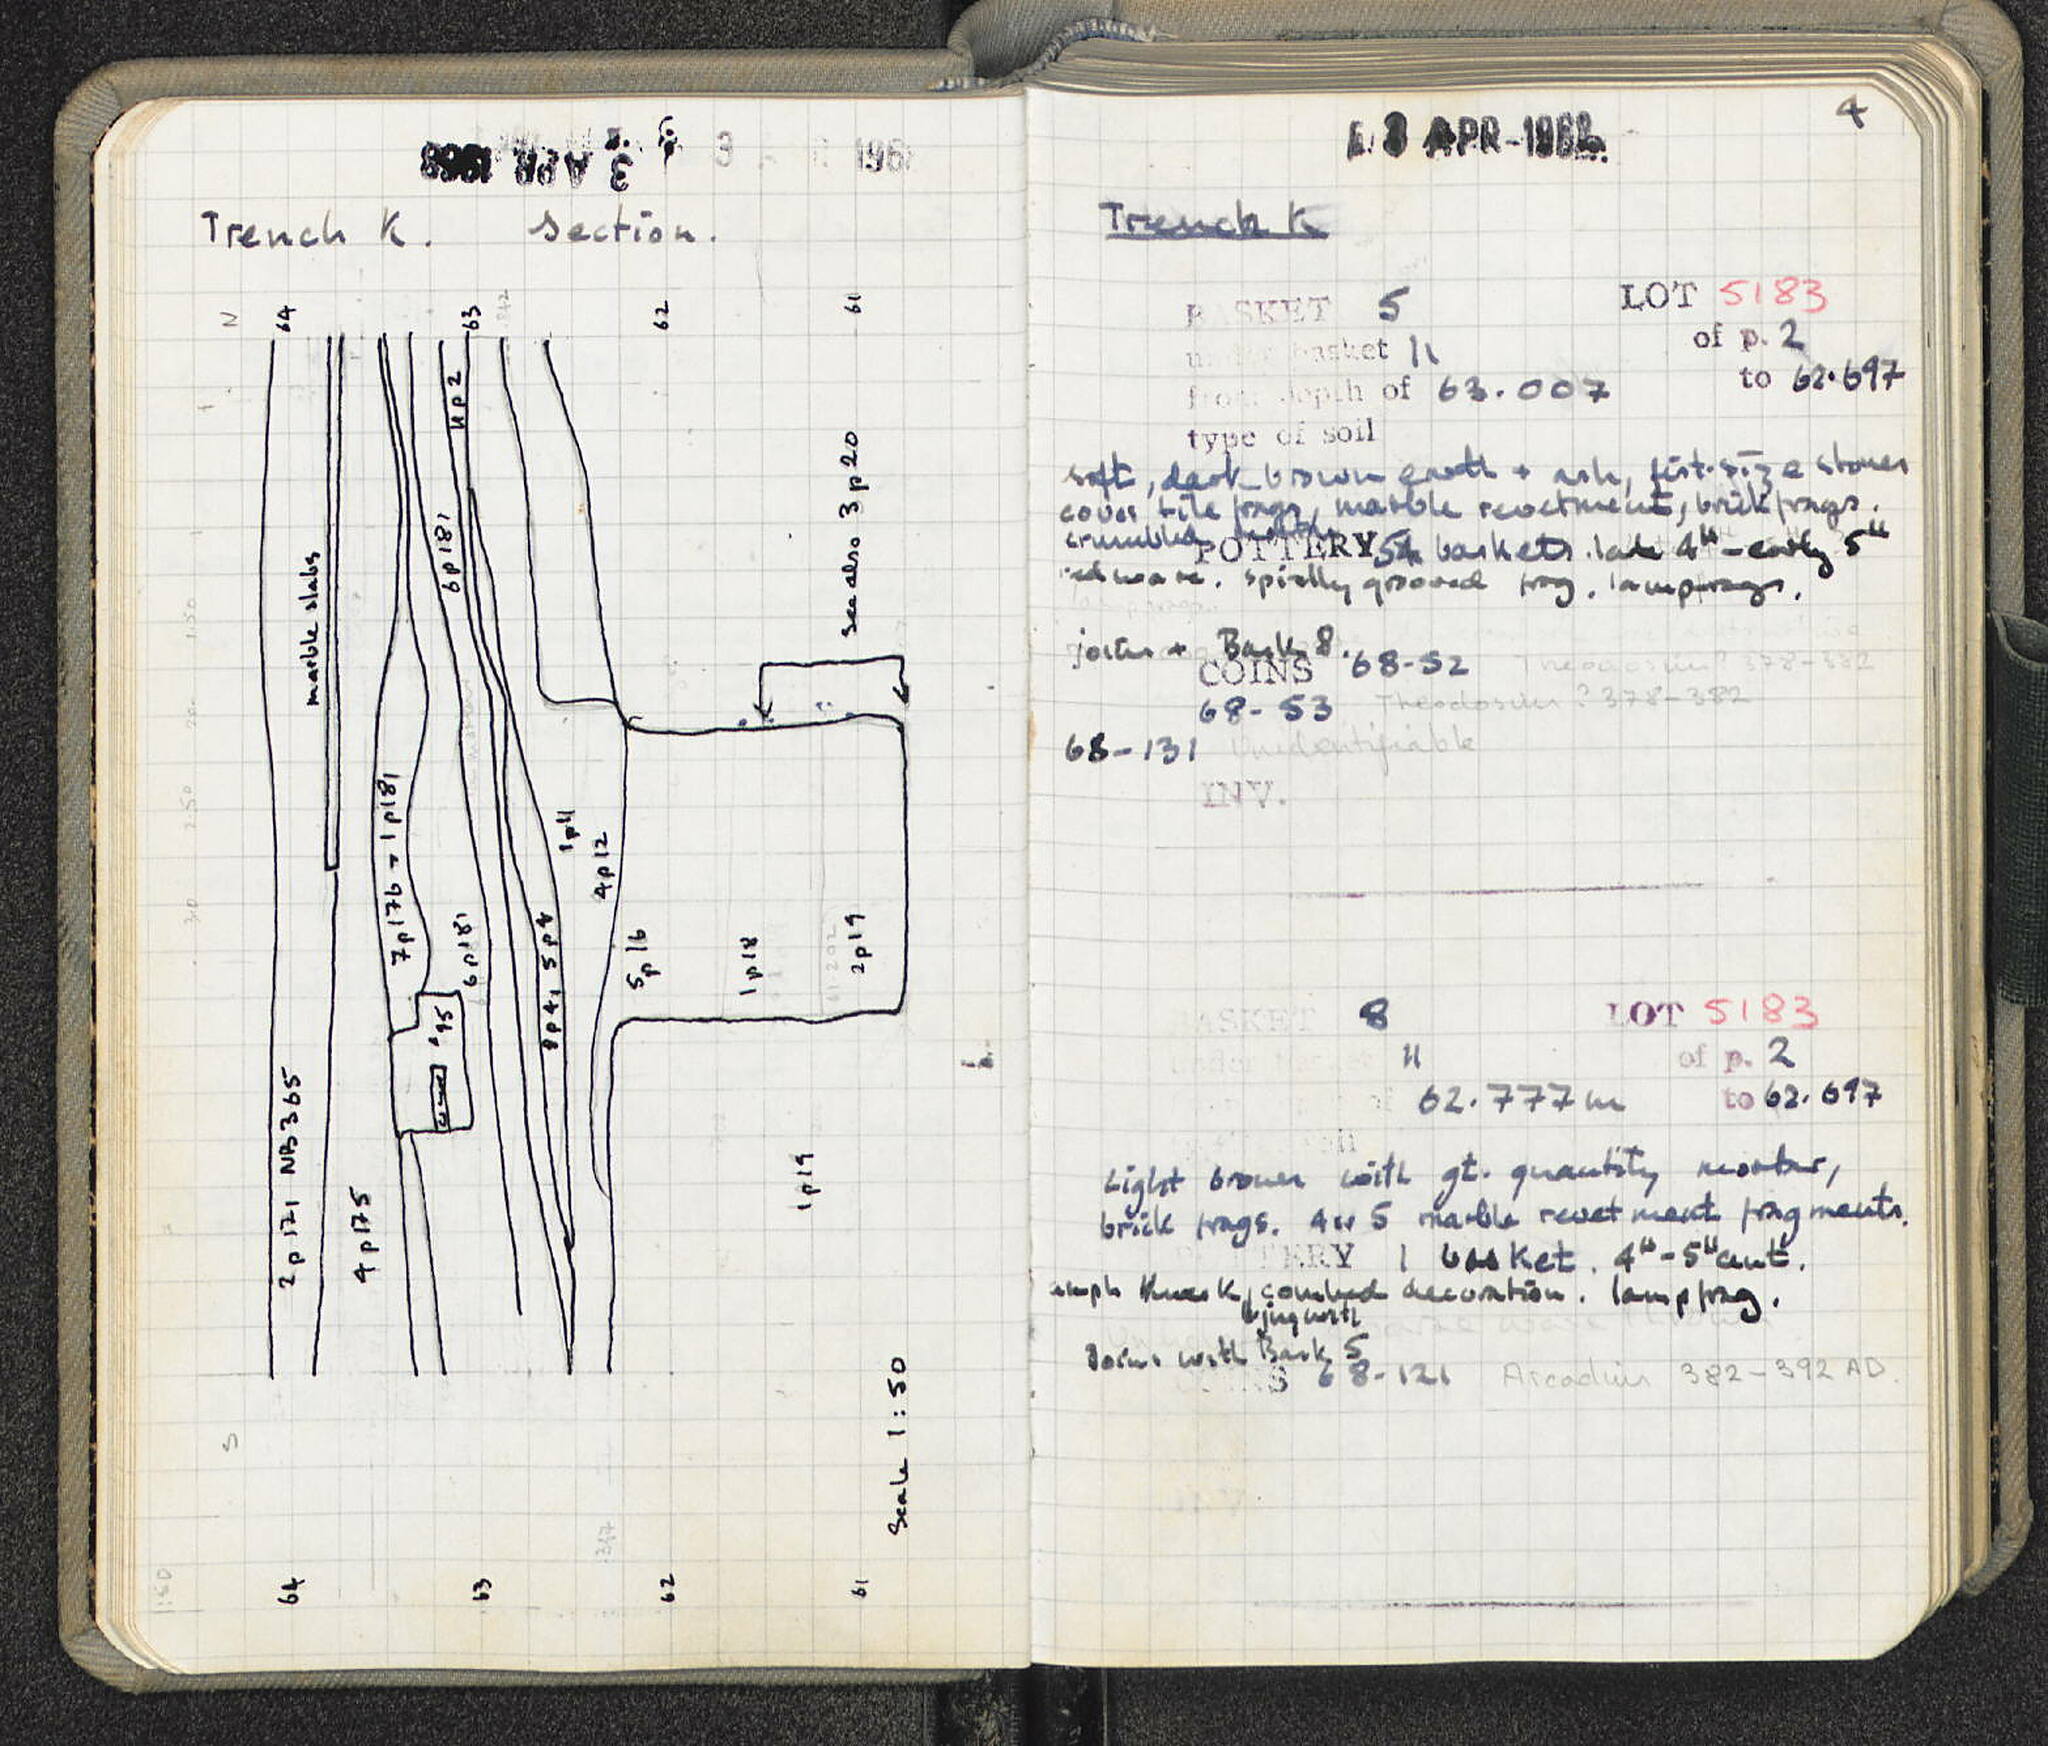 3 APR 1968
Trench K. Section.
N
64
63
62
61
marble slabs
11 p 2
6 p 181
see also 3 p 20
7 p 176 = 1 p 181
6 p 181
1 p 11
4 p 12
8 p 4, 5 p 4
5 p 16
1 p 18
2 p 19
61 202
2 p 171 NB 365
4 p 175
1 p 19
S
Scale 1:50
64
63
62
61
1:50
4
3 APR 1968
Trench K
BASKET 5 LOT 5183
under basket 11 of p. 2
from depth of 63.007 to 62.697
type of soil
soft, dark brown earth + ash, fist-size stones
cover tile frags, marble revetment, brick frags.
crumbled mortar
POTTERY 5½ baskets. late 4th - early 5th
red ware. spirally grooved frag. lamp frags.
joins + Bask 8.
COINS 68-52 Theodosius? 378-382
68-53 Theodosius? 378-382
68-131 Unidentifiable
INV.
BASKET 8 LOT 5183
under basket 11 of p. 2
62.777m to 62.697
Light brown with gt. quantity mortar,
brick frags. 4 or 5 marble revetment fragments.
POTTERY 1 basket. 4th-5th cent.
amph neck, combed decoration. lamp frag.
Joins with Bask 5
68-121 Arcadius 382-392 AD.